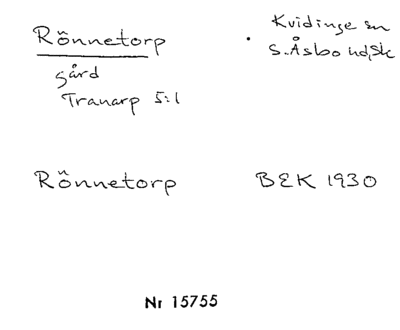 Rönnetorp
Kvidinge sn
S. Åsbo hd, Sk
gård
Tranarp 5:1
Rönnetorp BEK 1930
Nr 15755